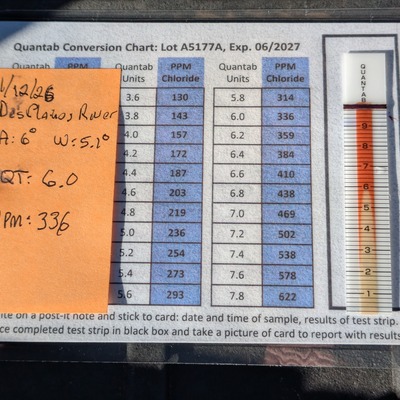 Quantab Conversion Chart: Lot A5177A, Exp. 06/2027
Quantab PPM Quantab PPM Quantab PPM
Units Chloride Units Chloride
3.6 130 5.8 314
3.8 143 6.0 336
4.0 157 6.2 359
4.2 172 6.4 384
4.4 187 6.6 410
4.6 203 6.8 438
4.8 219 7.0 469
5.0 236 7.2 502
5.2 254 7.4 538
5.4 273 7.6 578
5.6 293 7.8 622
1/12/26
Des Plaines River
A: 6° W: 5.1°
QT: 6.0
PPM: 336
QUANTAB
9
8
7
6
5
4
3
2
1
ite on a post-it note and stick to card: date and time of sample, results of test strip.
ce completed test strip in black box and take a picture of card to report with results